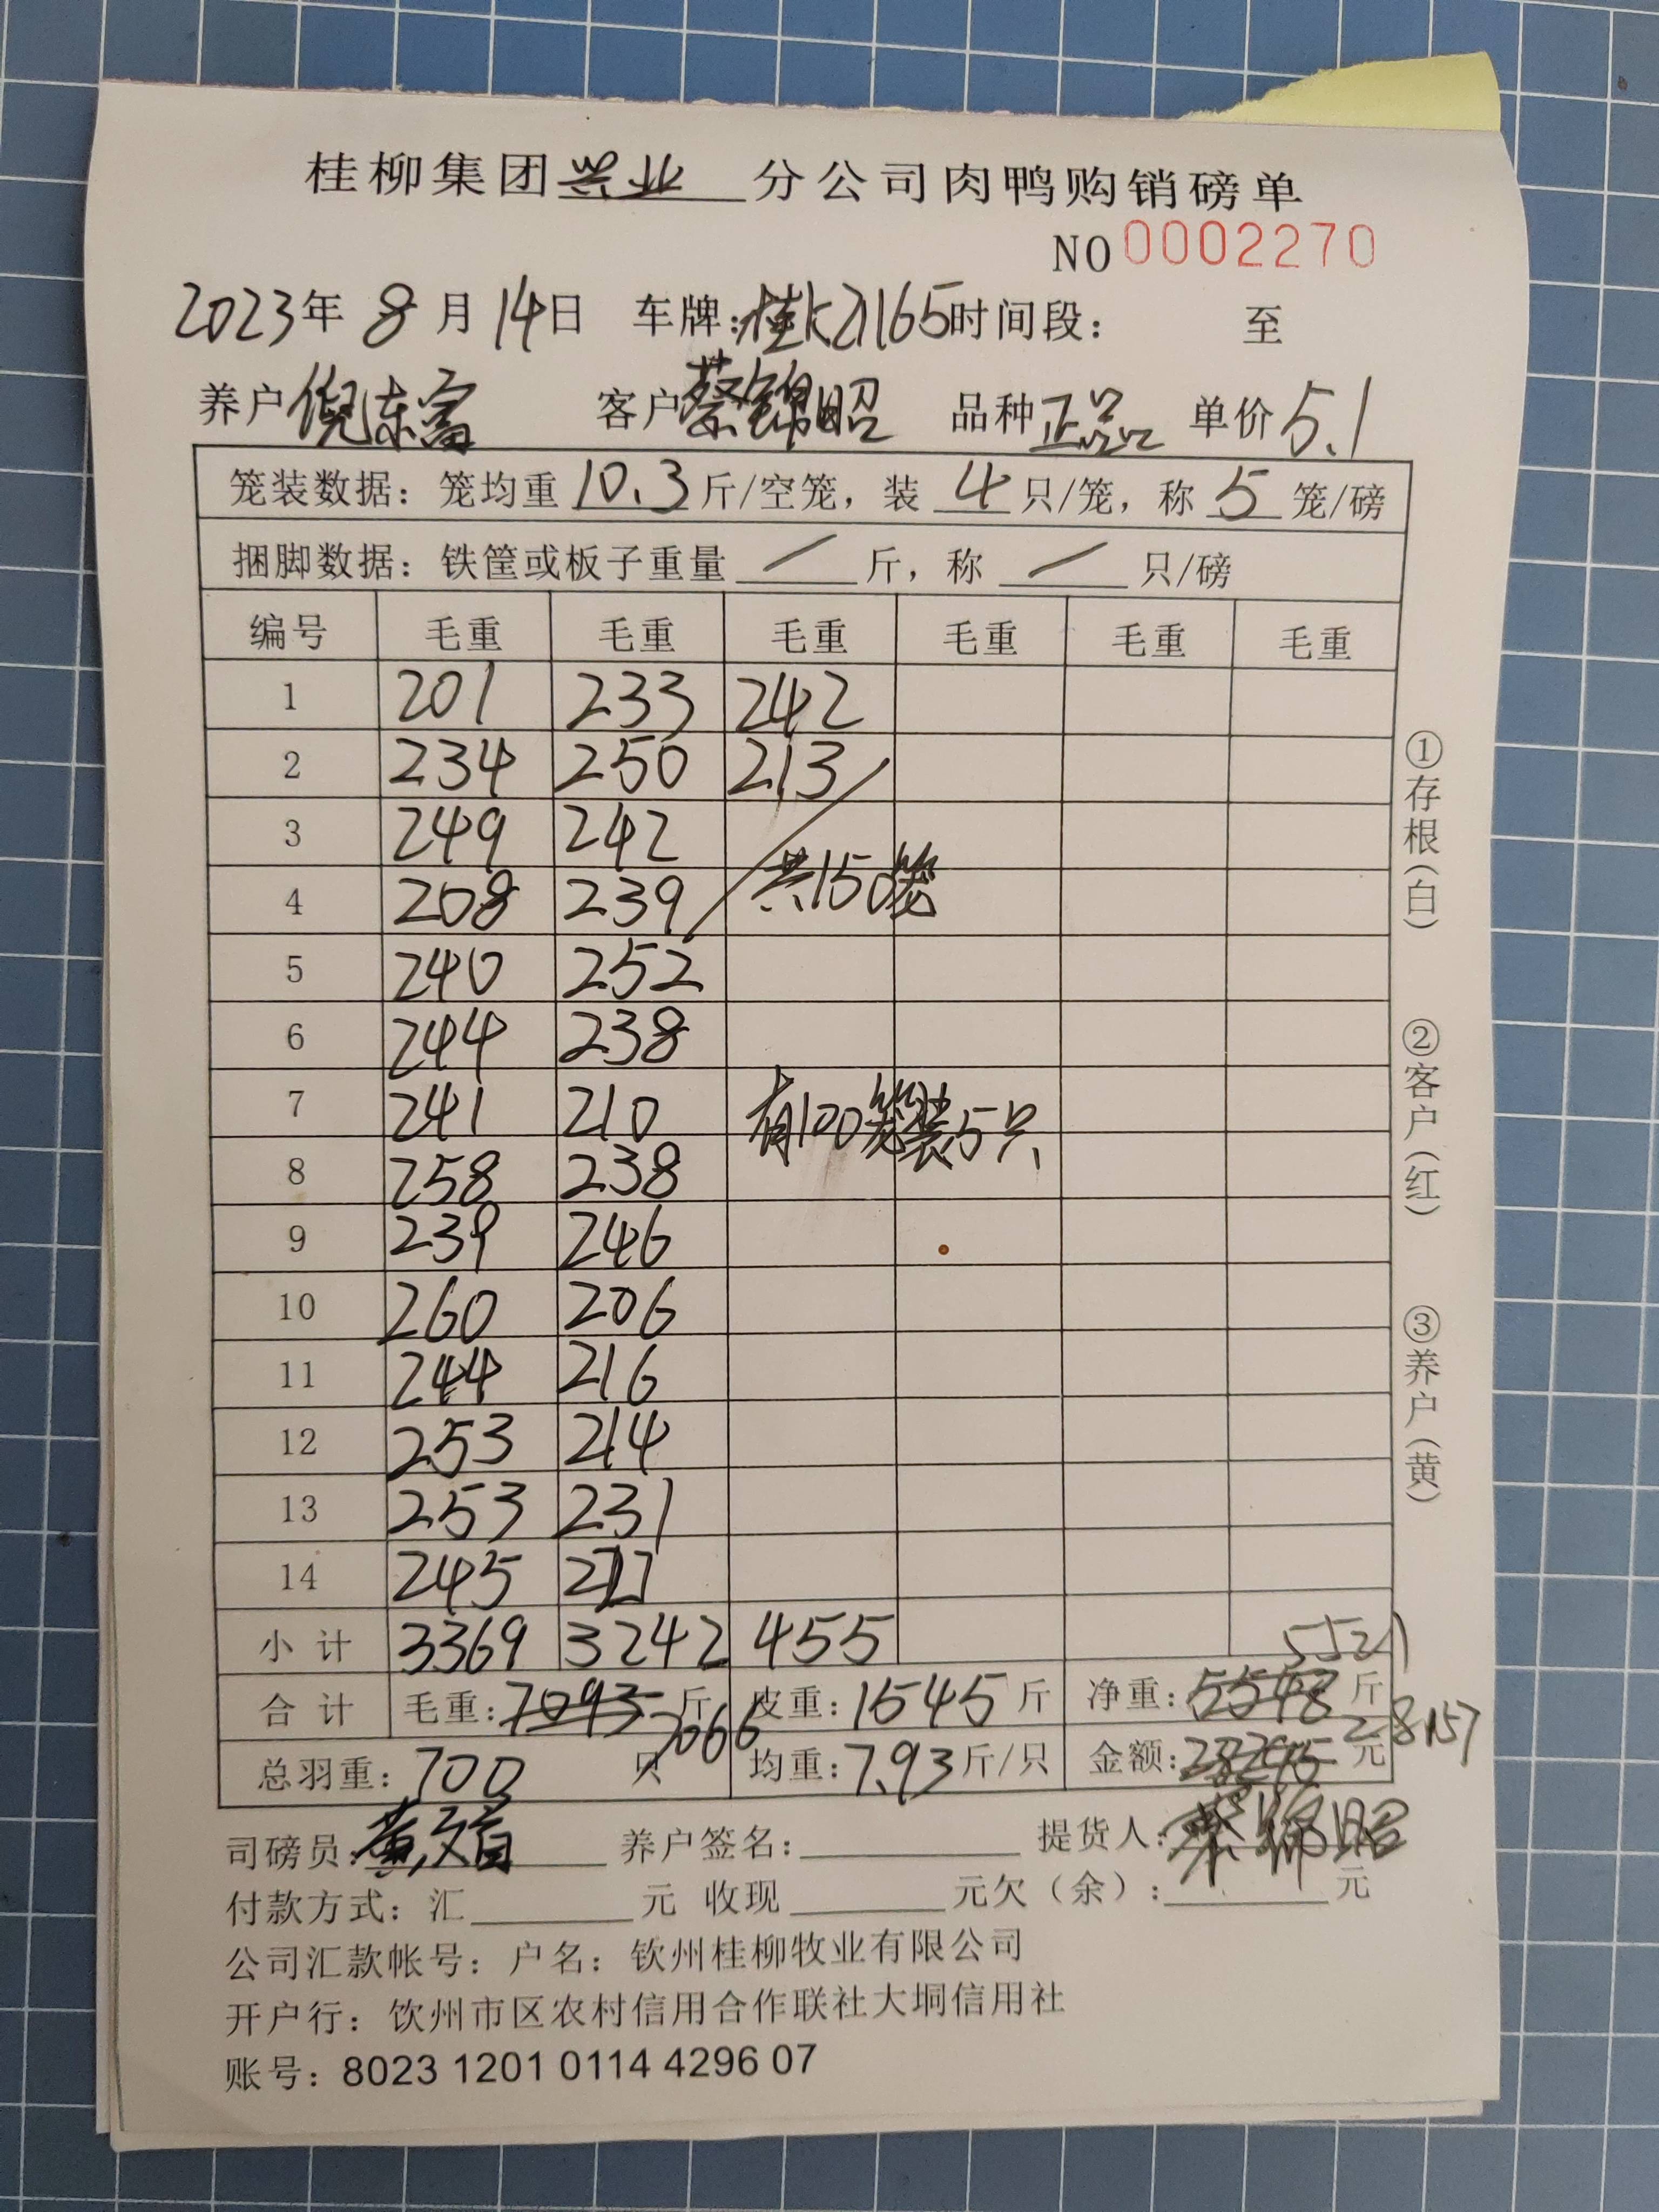 桂柳集团兴业分公司肉鸭购销磅单
NO 0002270
2023年 8月14日 车牌:桂K21165时间段: 至
养户倪东富 客户蔡锦昭 品种正品 单价5.1
笼装数据: 笼均重10.3斤/空笼, 装4只/笼, 称5笼/磅
捆脚数据: 铁筐或板子重量/斤, 称/只/磅
编号 毛重 毛重 毛重 毛重 毛重 毛重
1 201 233 242
2 234 250 213
3 249 242
4 208 239 共150笼
5 240 252
6 244 238
7 241 210 有100笼装5只
8 258 238
9 239 246
10 260 206
11 244 216
12 253 214
13 253 231
14 245
小计 3369 3242 455
5521
合计 毛重:7093斤 皮重:1545斤 净重:5548斤
7066 28157
总羽重:700只 均重:7.93斤/只 金额:28295元
司磅员: 养户签名: 提货人:蔡锦昭
付款方式: 汇 元 收现 元欠(余): 元
公司汇款帐号: 户名: 钦州桂柳牧业有限公司
开户行: 钦州市区农村信用合作联社大垌信用社
账号: 8023 1201 0114 4296 07
①存根(白)
②客户(红)
③养户(黄)